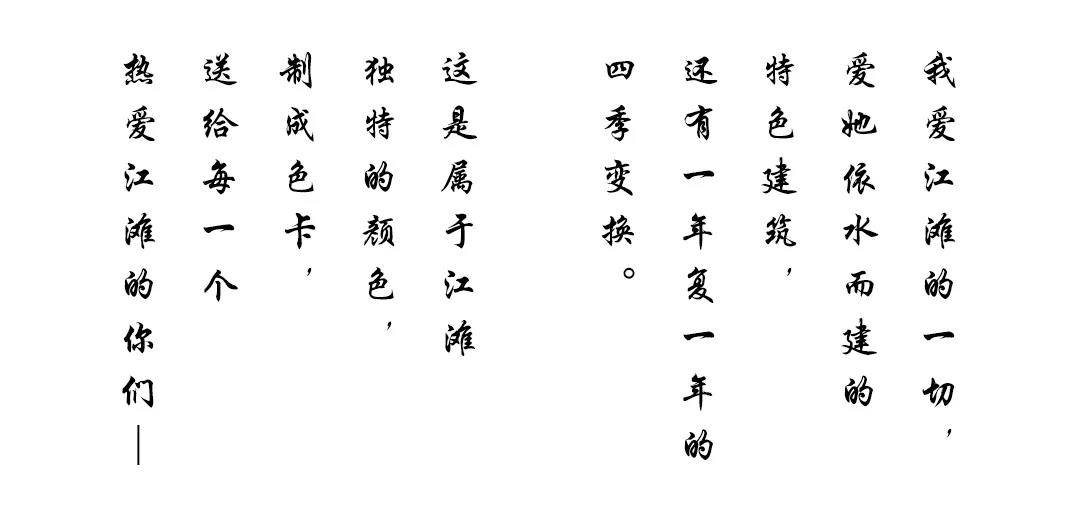 我爱江滩的一切，
爱她依水而建的
特色建筑，
还有一年复一年的
四季变换。
这是属于江滩
独特的颜色，
制成色卡，
送给每一个
热爱江滩的你们—